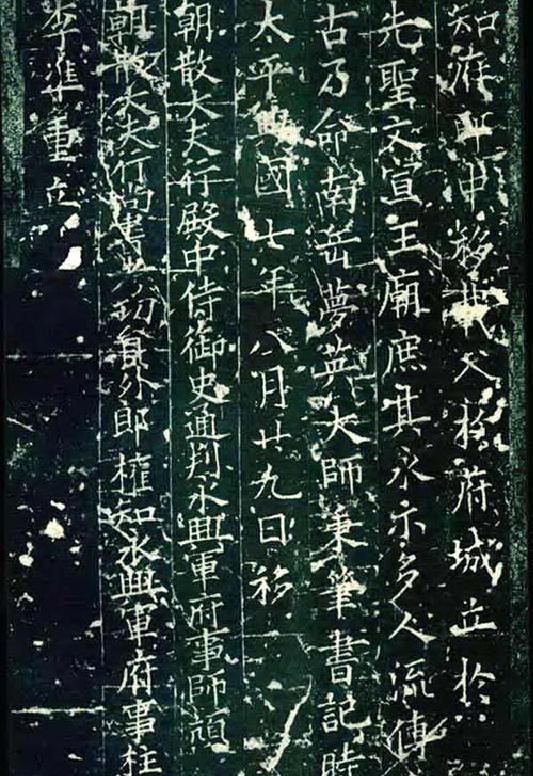 知府郎中移載入於府城立於
先聖文宣王廟庶其永示多人流傳
古乃命南岳夢英大師秉筆書記時
太平興國七年八月廿九日移
朝散大夫行殿中侍御史通判永興軍府事師頑
朝散大夫行尚書兵部員外郎權知永興軍府事柱
李準重立